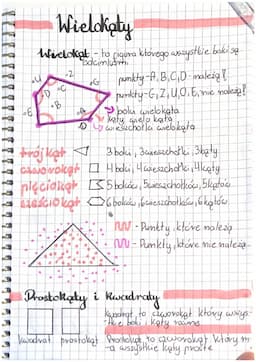 Wielokąty
Wielokąt - to figura którego wszystkie boki są
odcinkami.
punkty - A, B, C, D - należą?
punkty - G, Z, U, O, E, nie należą?
boki wielokąta
kąty wielokąta
wierzchołki wielokąta
trójkąt 3 boki, 3 wierzchołki, 3 kąty
czworokąt 4 boki, 4 wierzchołki, 4 kąty
pięciokąt 5 boków, 5 wierzchołków, 5 kątów
sześciokąt 6 boków, 6 wierzchołków, 6 kątów
- Punkty, które należą
- Punkty, które nie należą
Prostokąty i kwadraty
kwadrat, to czworokąt który wszys-
tkie boki i kąty równe
kwadrat prostokąt Prostokąt, to czworokąt który m-
a wszystkie kąty proste